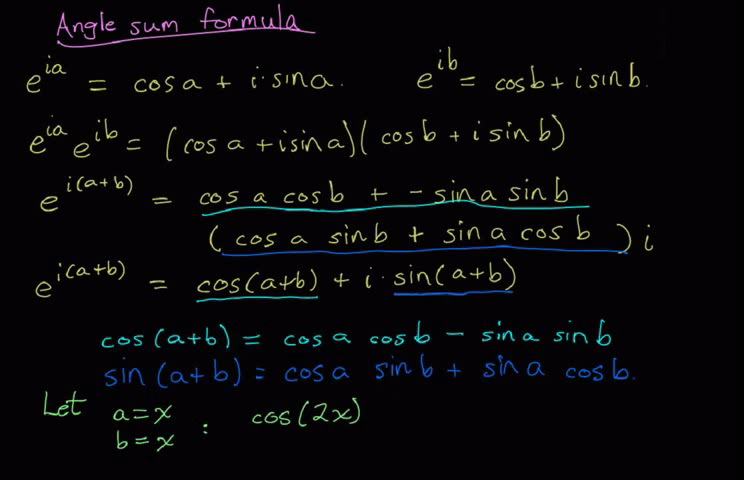 Angle sum formula
e^{ia} = cos a + i·sin a.   e^{ib} = cos b + i sin b.
e^{ia} e^{ib} = (cos a + i sin a)(cos b + i sin b)
e^{i(a+b)} = cos a cos b + - sin a sin b
(cos a sin b + sin a cos b) i
e^{i(a+b)} = cos(a+b) + i · sin(a+b)
cos (a+b) = cos a cos b - sin a sin b
sin (a+b) = cos a sin b + sin a cos b.
Let a = x : cos(2x)
b = x